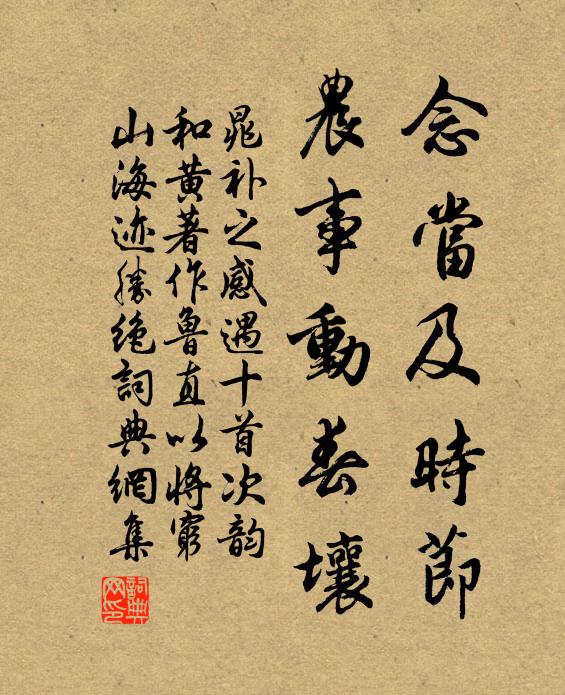 念當及時節
農事動春壤
晁补之感遇十首次韵
和黄著作鲁直以將窮
山海迹勝絶詞典網集
詞典网印